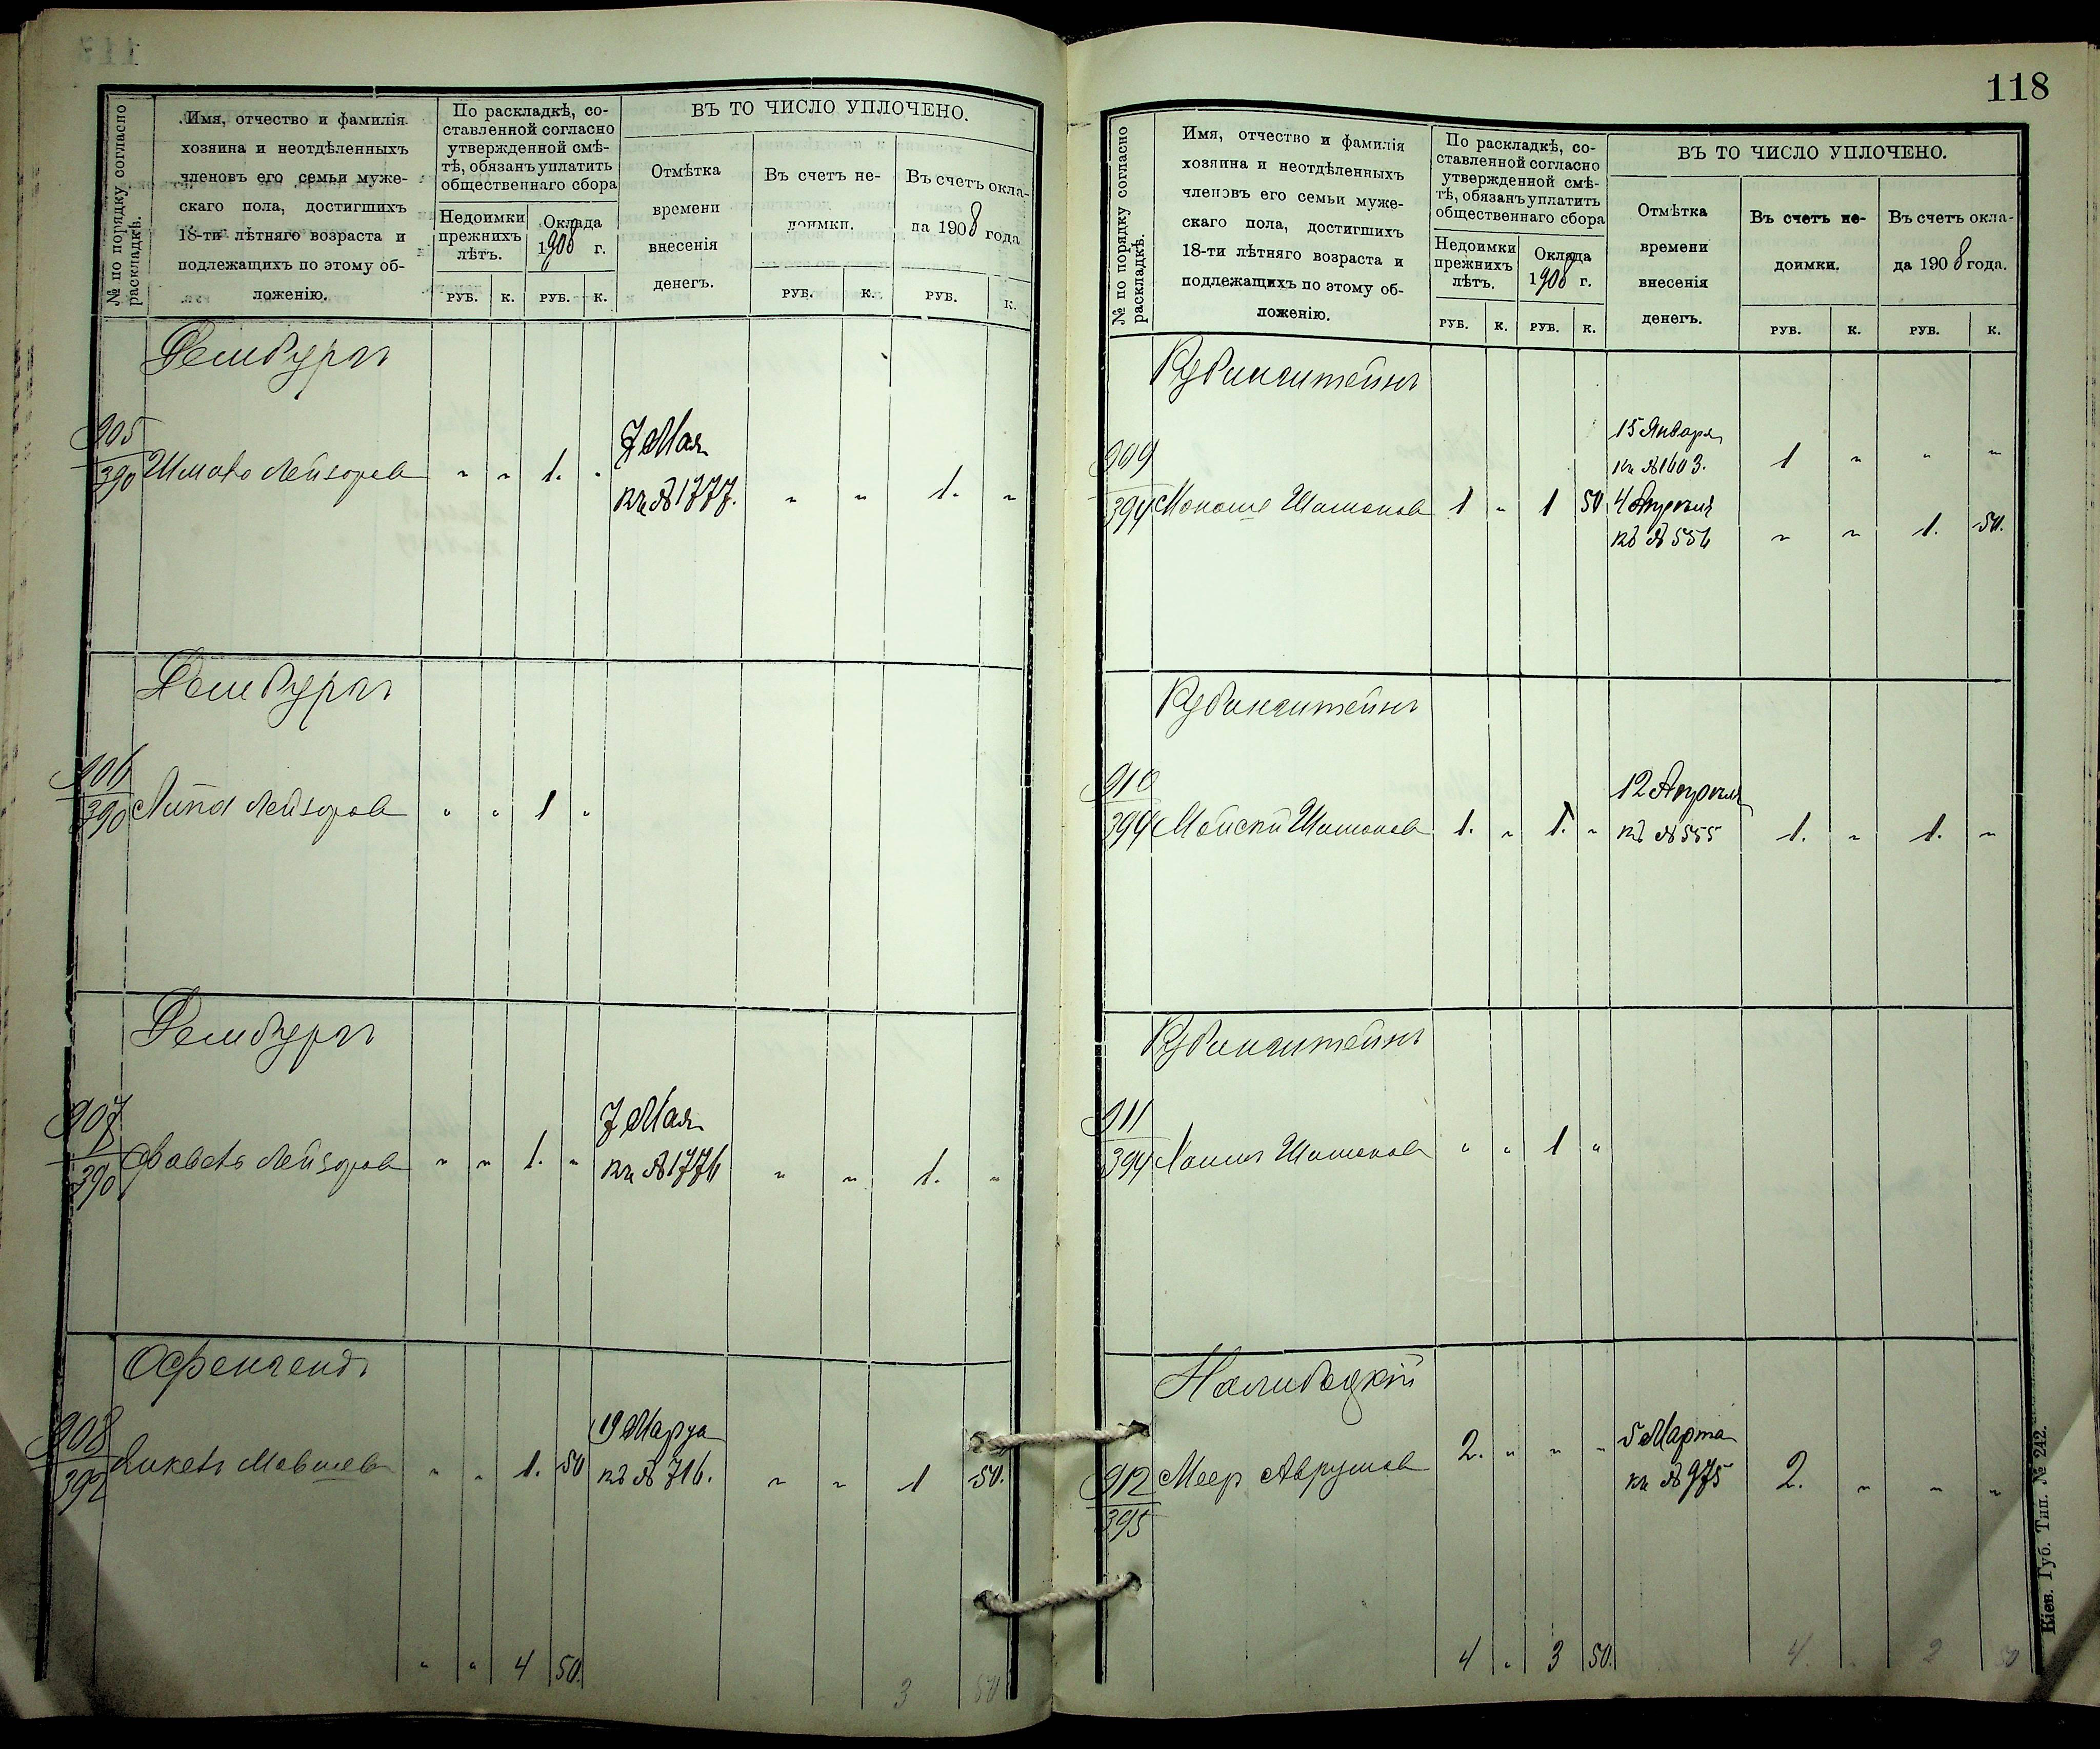 № по порядку согласно
раскладкѣ.
Имя, отчество и фамилія
хозяина и неотдѣленныхъ
членовъ его семьи муже-
скаго пола, достигшихъ
18-ти лѣтняго возраста и
подлежащихъ по этому об-
ложенію.
По раскладкѣ, со-
ставленной согласно
утвержденной смѣ-
тѣ, обязанъ уплатить
общественнаго сбора
Недоимки
прежнихъ
лѣтъ.
Оклада
1908 г.
РУБ. К. РУБ. К.
ВЪ ТО ЧИСЛО УПЛОЧЕНО.
Отмѣтка
времени
внесенія
денегъ.
Въ счетъ не-
доимки.
Въ счетъ окла-
да 1908 года
РУБ. К. РУБ. К.
905
390 Лейзоровъ " " 1. "
7 Мая
кв № 1777. " " 1. "
906
390 Лейзоровъ " " 1 "
907
390 Лейзоровъ " " 1. "
7 Мая
кв № 1776 " " 1. "
Офенгендъ
908
392 Мовшевъ " " 1. 50
19 Марта
кв № 716. " " 1 50.
" " 4 50.
3 50
118
№ по порядку согласно
раскладкѣ.
Имя, отчество и фамилія
хозяина и неотдѣленныхъ
членовъ его семьи муже-
скаго пола, достигшихъ
18-ти лѣтняго возраста и
подлежащихъ по этому об-
ложенію.
По раскладкѣ, со-
ставленной согласно
утвержденной смѣ-
тѣ, обязанъ уплатить
общественнаго сбора
Недоимки
прежнихъ
лѣтъ.
Оклада
1908 г.
РУБ. К. РУБ. К.
ВЪ ТО ЧИСЛО УПЛОЧЕНО.
Отмѣтка
времени
внесенія
денегъ.
Въ счетъ не-
доимки.
Въ счетъ окла-
да 1908 года.
РУБ. К. РУБ. К.
Рубинштейнъ
909
394 Монаше Шимоновъ 1 " 1 50
15 Января
кв № 1603. 1 " " "
4 Апрѣля
кв № 556 " " 1. 50.
Рубинштейнъ
910
394 Шимоновъ 1. " 1. "
12 Апрѣля
кв № 555 1. " 1. "
Рубинштейнъ
911
394 Шимоновъ " " 1 "
912
395 Меер Аврумовъ 2. " " "
5 Марта
кв № 975 2. " " "
4 " 3 50.
4 " 2 50
Кіев. Губ. Тип. № 242.